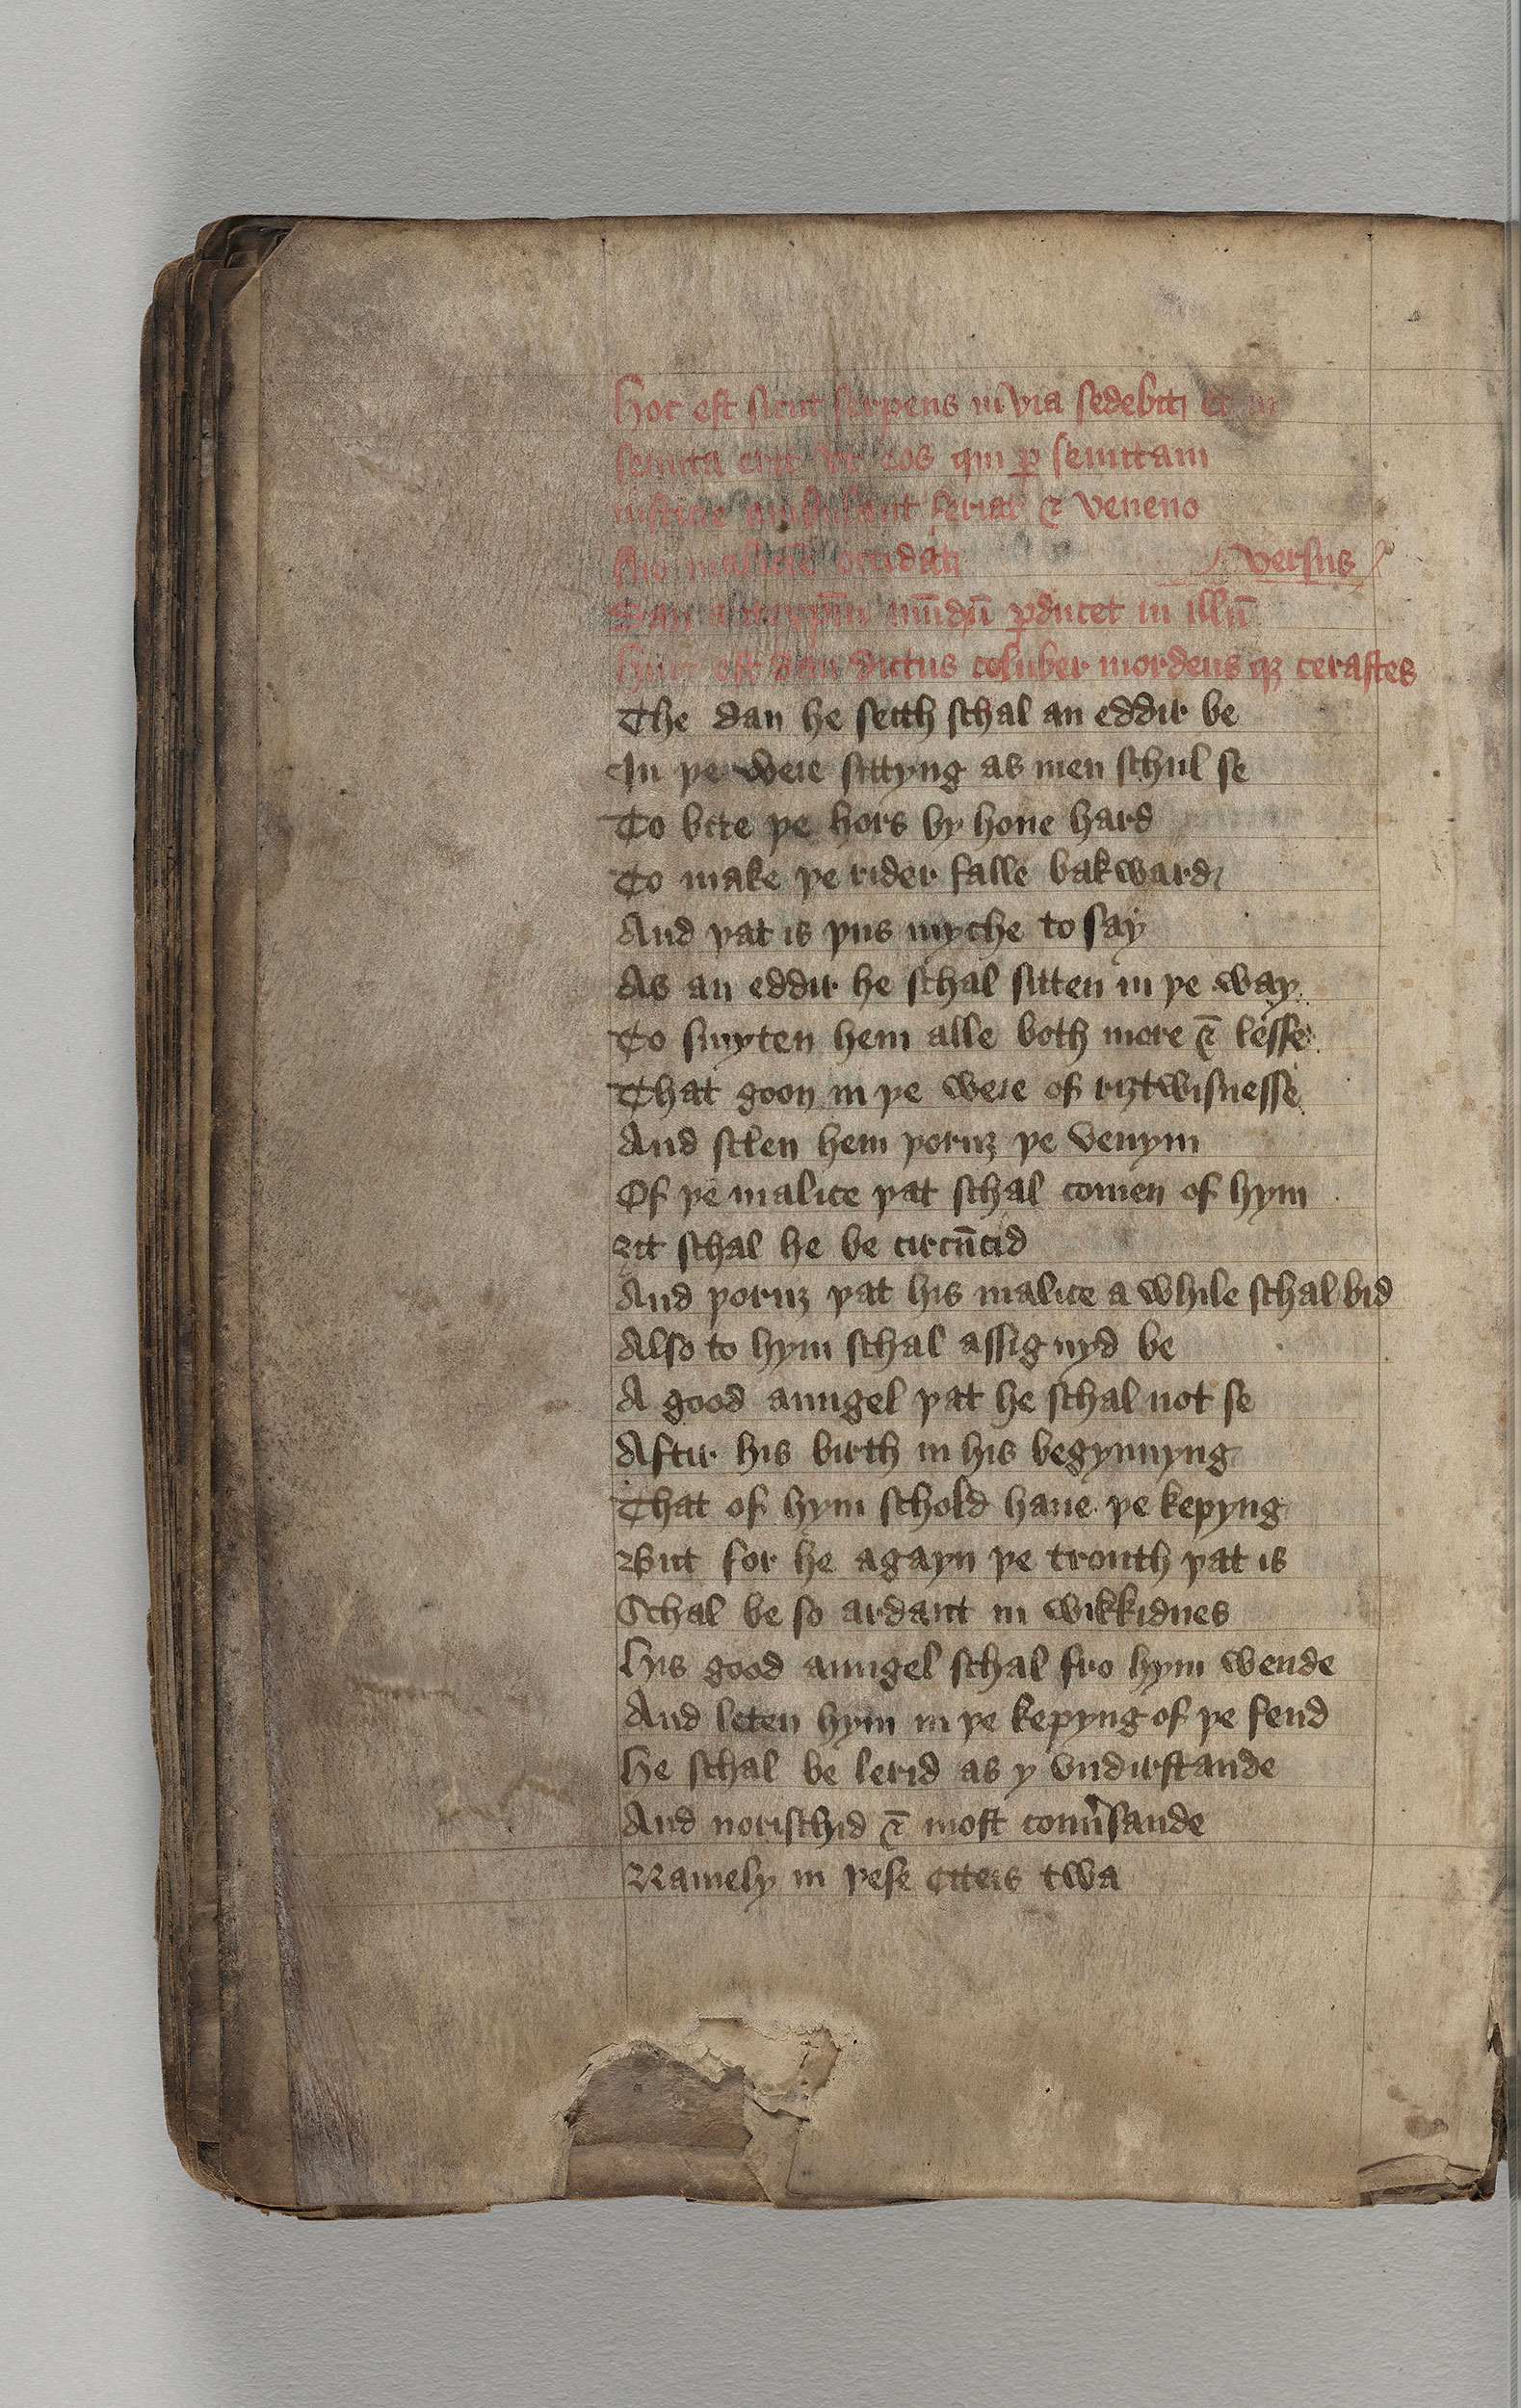 Hoc est sicut serpens in via sedebit et in
semita erit vt eos qui ꝑ semitam
iusticie ambulant feriat ⁊ veneno
sue malicie occidat
versus
Dan mūdū ꝑducet in illū
Hinc est dan dictus coluber mordens qꝫ cerastes
The dan he seith schal an eddir be
In þe weie sittyng as men schul se
To bite þe hors by houe hard
To make þe rider falle bakward
And þat is þus myche to say
As an eddir he schal sitten in þe way
To smyten hem alle both more ⁊ lesse
That goon in þe weie of riȝtwisnesse
And sclen hem þoruȝ þe venym
Of þe malice þat schal comen of hym
ȝit schal he be circūcid
And þoruȝ þat his malice a while schal bid
Also to hym schal assignyd be
A good aungel þat he schal not se
Aftir his birth in his begynnyng
That of hym schold haue þe kepyng
But for he agayn þe trouth þat is
Schal be so ardant in wikkidnes
His good aungel schal fro hym wende
And leten hym in þe kepyng of þe fend
He schal be lerid as y vndirstande
And norischid ⁊ most conuˀsande
Namely in þese citeis twa